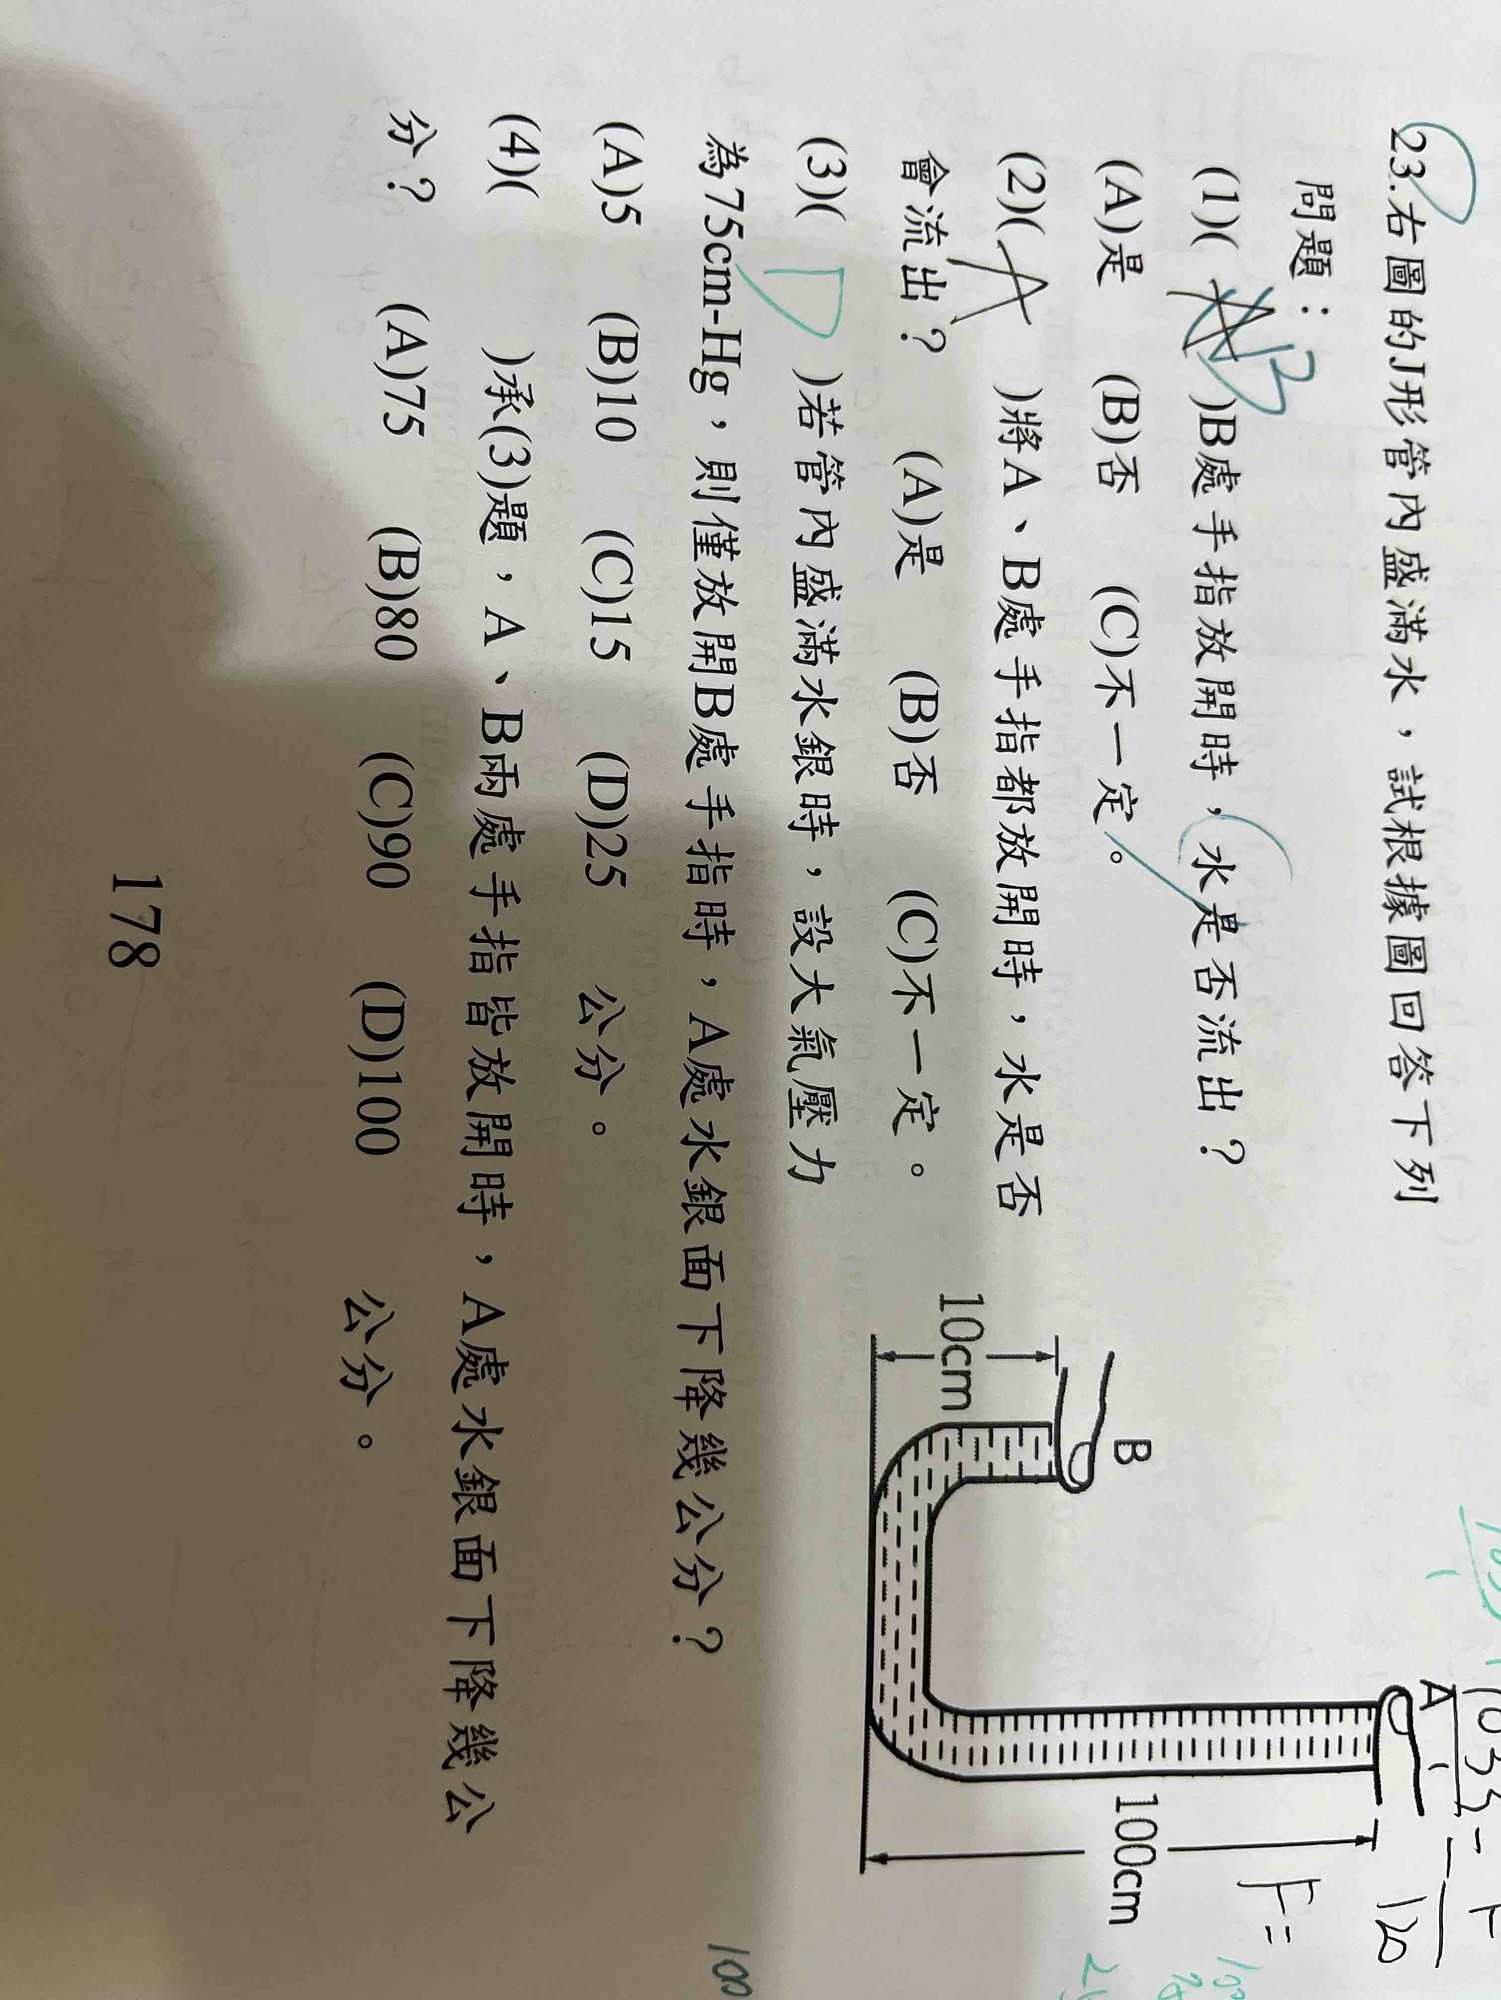 23.右圖的J形管內盛滿水，試根據圖回答下列
問題：
(1)( B )B處手指放開時，水是否流出？
(A)是 (B)否 (C)不一定。
(2)( A )將A、B處手指都放開時，水是否
會流出？ (A)是 (B)否 (C)不一定。
(3)( D )若管內盛滿水銀時，設大氣壓力
為75cm-Hg，則僅放開B處手指時，A處水銀面下降幾公分？
(A)5 (B)10 (C)15 (D)25 公分。
(4)( )承(3)題，A、B兩處手指皆放開時，A處水銀面下降幾公
分？ (A)75 (B)80 (C)90 (D)100 公分。
B
10cm
A
100cm
F=
120
100
178